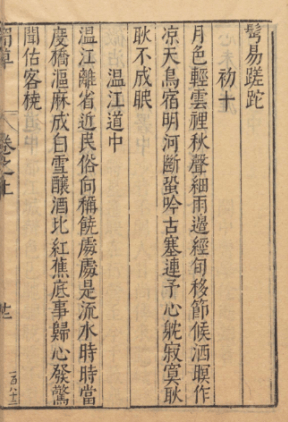 髩易蹉跎
初十
月色輕雲裡秋聲細雨邊經旬移節候洒暝作
凉天鳥宿明河斷蛩吟古塞連予心躭寂寞耿
耿不成眠
温江道中
温江離省近民俗向稱饒處處是流水時時當
度橋漚麻成白雪釀酒比紅蕉底事歸心發驚
聞估客橈
卷之上